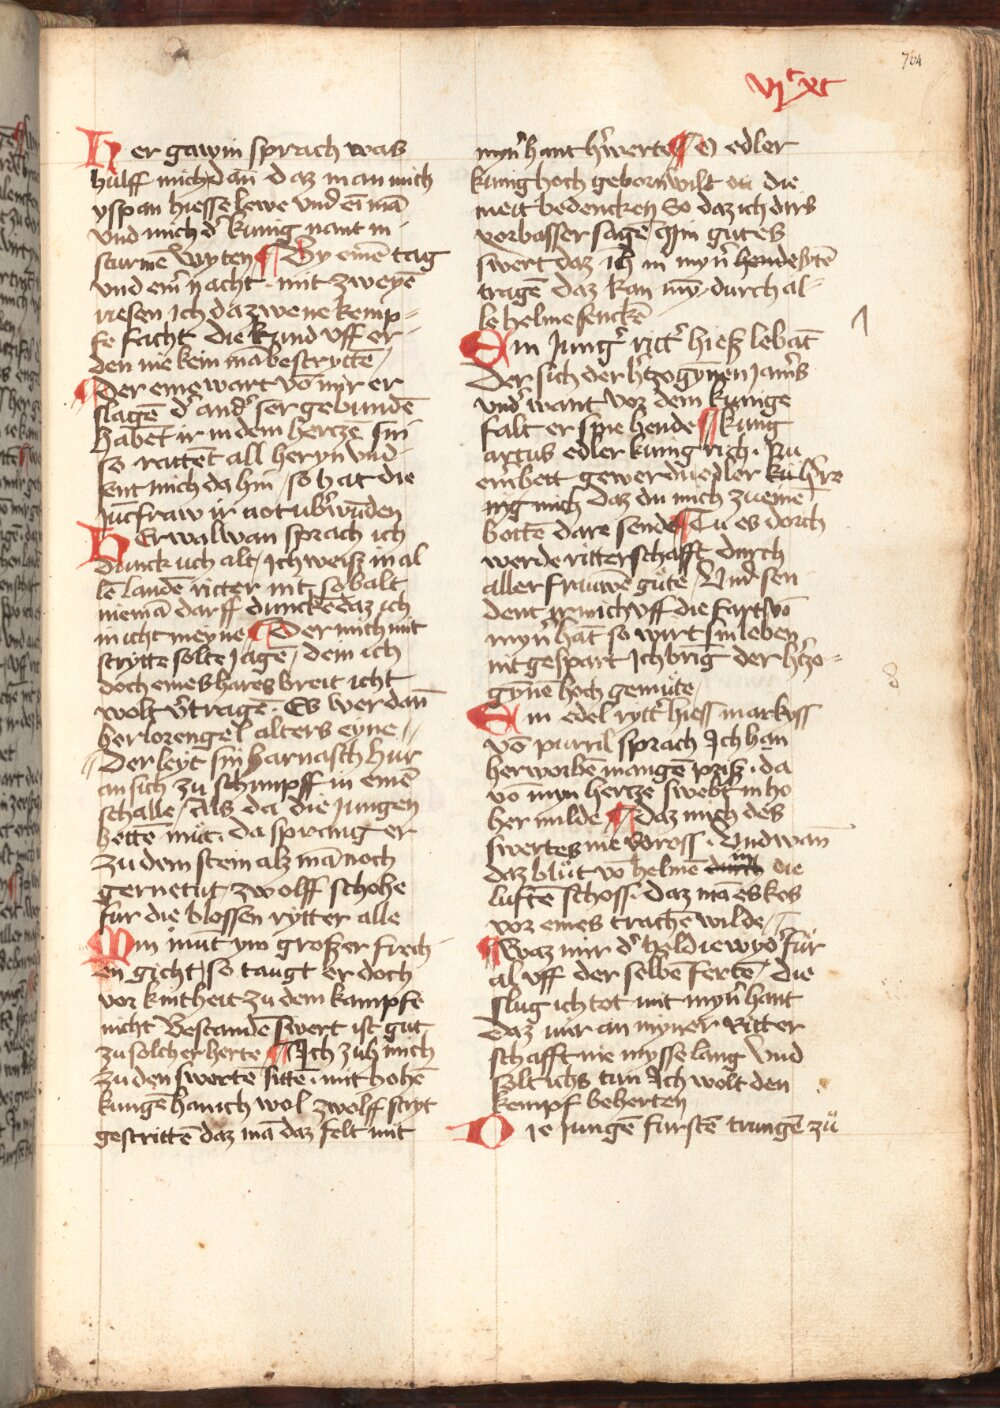 704
vjc xc
Her gawin sprach was
hulff mich dan daz man mich
yspan hiesse lewe vnd ein mā
vnd mich d' kunig nant in
sturmē wyten ¶ By einē tag
vnd ein' nacht mit zweyē
riesen ich da zwene kemp-
fe facht die kund vff er-
den nie kein mā bestrytte
¶ Der eine wart vō mir er
slagē d' and' ser gebundē
habēt ir in dem hertzē sin
so rattēt all her yn vnd
sent mich da hin / so hat die
Jūcfraw ir not ub'wūden
HEr walwan sprach ich
dunck uch alt / Ich weisz in al
lē landē ritter nit so balt
niemā darff dunckē daz ich
in icht meyne ¶ Der mich mit
strytte solte Jagē / dem ich
doch eines hares breit icht
wolt v'tragē. Es wer dañ
her lorengel alters eyne
Der leyt sin harnasch hur
an sich zu schimpff in einē
schalle / Als da die Jungen
hettē mut. da sprang er
zu dem stein alz mā noch
gerne tut zwolff schohe
fur die blossen rytter alle
Min mut ym groszer frech
en gicht / so taugt er doch
vor kintheit zu dem kampfe
nicht Bestandē swert ist gut
zu solcher herte ¶ Ich zuh mich
zu den swertē sittē. mit hohē
kungē han ich wol zwolff stryt
gestrittē daz mā daz felt mit
myn' hant h'werte ¶ O edler
kunig hoch geborn wilt du die
meit bedencken So daz ich dirs
vorbasser sage Gin gutes
swert daz ich in myn' hende sytē
tragē daz kan myn durch al-
le helme senckē
Ein Jung' ritt' hiesz lebāt
Der sich der h'tzogynnen Jam's
vnd' want vor dem kunige
falt er sprehende ¶ kung
artus edler kunig rich. Nu
ein bett gewer du edler ku h're
nig mich daz du mich zu eine
bottē dare sende ¶ Tu es dorch
werde ritterschafft durch
aller frauwē gute / Vnd sen
dent ir mich vff die fart vō
myn' hāt so wirt sin leben
nit gespart Ich bring der h'tzo-
gynē hoch gemute
Ein edel rytt' hiess markyss
vō purril sprach Ich han
herworbē mangē prisz. da
vō myn hertze swebt in ho
her milde ¶ daz mich des
swertes nie v'dross. Vnd wañ
daz blut vō helmē in die
luftē schoss. daz mā es kos
vor eines trachē wilde
¶ Waz mir d' held ie wyd' fur
al vff der selbe ferte / die
slug ich tot mit myn' hant
daz mir an myner Ritter
schafft nie mysse lang Vnd
solt ichs tun Ich wolt den
kempf beherten
Die Jungē furstē trungē zu